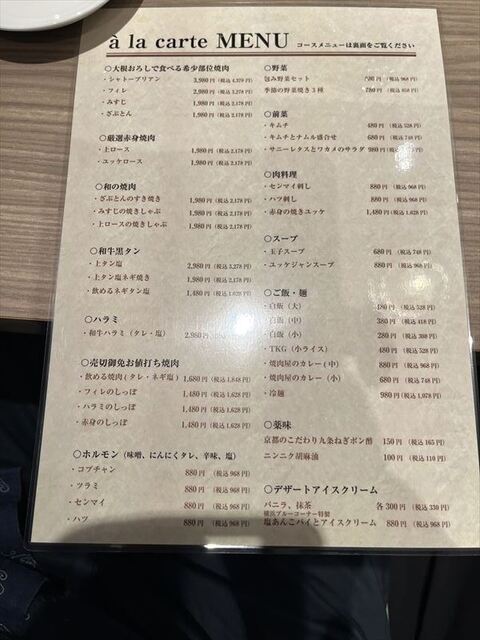 à la carte MENU コースメニューは裏面をご覧ください
〇大根おろしで食べる希少部位焼肉
・シャトーブリアン 3,980円(税込4,378円)
・フィレ 2,980円(税込3,278円)
・みすじ 1,980円(税込2,178円)
・ざぶとん 1,980円(税込2,178円)
〇厳選赤身焼肉
・上ロース 1,980円(税込2,178円)
・ユッケロース 1,980円(税込2,178円)
〇和の焼肉
・ざぶとんのすき焼き 1,980円(税込2,178円)
・みすじの焼きしゃぶ 1,980円(税込2,178円)
・上ロースの焼きしゃぶ 1,980円(税込2,178円)
〇和牛黒タン
・上タン塩 2,980円(税込3,278円)
・上タン塩ネギ焼き 1,980円(税込2,178円)
・飲めるネギタン塩 1,480円(税込1,628円)
〇ハラミ
・和牛ハラミ(タレ・塩) 2,980円
〇売切御免お値打ち焼肉
・飲める焼肉(タレ・ネギ塩) 1,680円(税込1,848円)
・フィレのしっぽ 1,480円(税込1,628円)
・ハラミのしっぽ 1,480円(税込1,628円)
・赤身のしっぽ 1,480円(税込1,628円)
〇ホルモン(味噌、にんにくタレ、辛味、塩)
・コプチャン 880円(税込968円)
・ツラミ 880円(税込968円)
・センマイ 880円(税込968円)
・ハツ 880円(税込968円)
〇野菜
包み野菜セット (税込968円)
季節の野菜焼き3種 780円(税込858円)
〇前菜
・キムチ 480円(税込528円)
・キムチとナムル盛合せ 680円(税込748円)
・サニーレタスとワカメのサラダ 980円(税込1,078円)
〇肉料理
・センマイ刺し 880円(税込968円)
・ハツ刺し 880円(税込968円)
・赤身の焼きユッケ 1,480円(税込1,628円)
〇スープ
・玉子スープ 680円(税込748円)
・ユッケジャンスープ 880円(税込968円)
〇ご飯・麺
・白飯(大) 480円(税込528円)
・白飯(中) 380円(税込418円)
・白飯(小) 280円(税込308円)
・TKG(小ライス) 480円(税込528円)
・焼肉屋のカレー(中) 880円(税込968円)
・焼肉屋のカレー(小) 680円(税込748円)
・冷麺 980円(税込1,078円)
〇薬味
京都のこだわり九条ねぎポン酢 150円(税込165円)
ニンニク胡麻油 100円(税込110円)
〇デザートアイスクリーム
バニラ、抹茶 各300円(税込330円)
横浜ブルーコーナー特製
塩あんこパイとアイスクリーム 880円(税込968円)